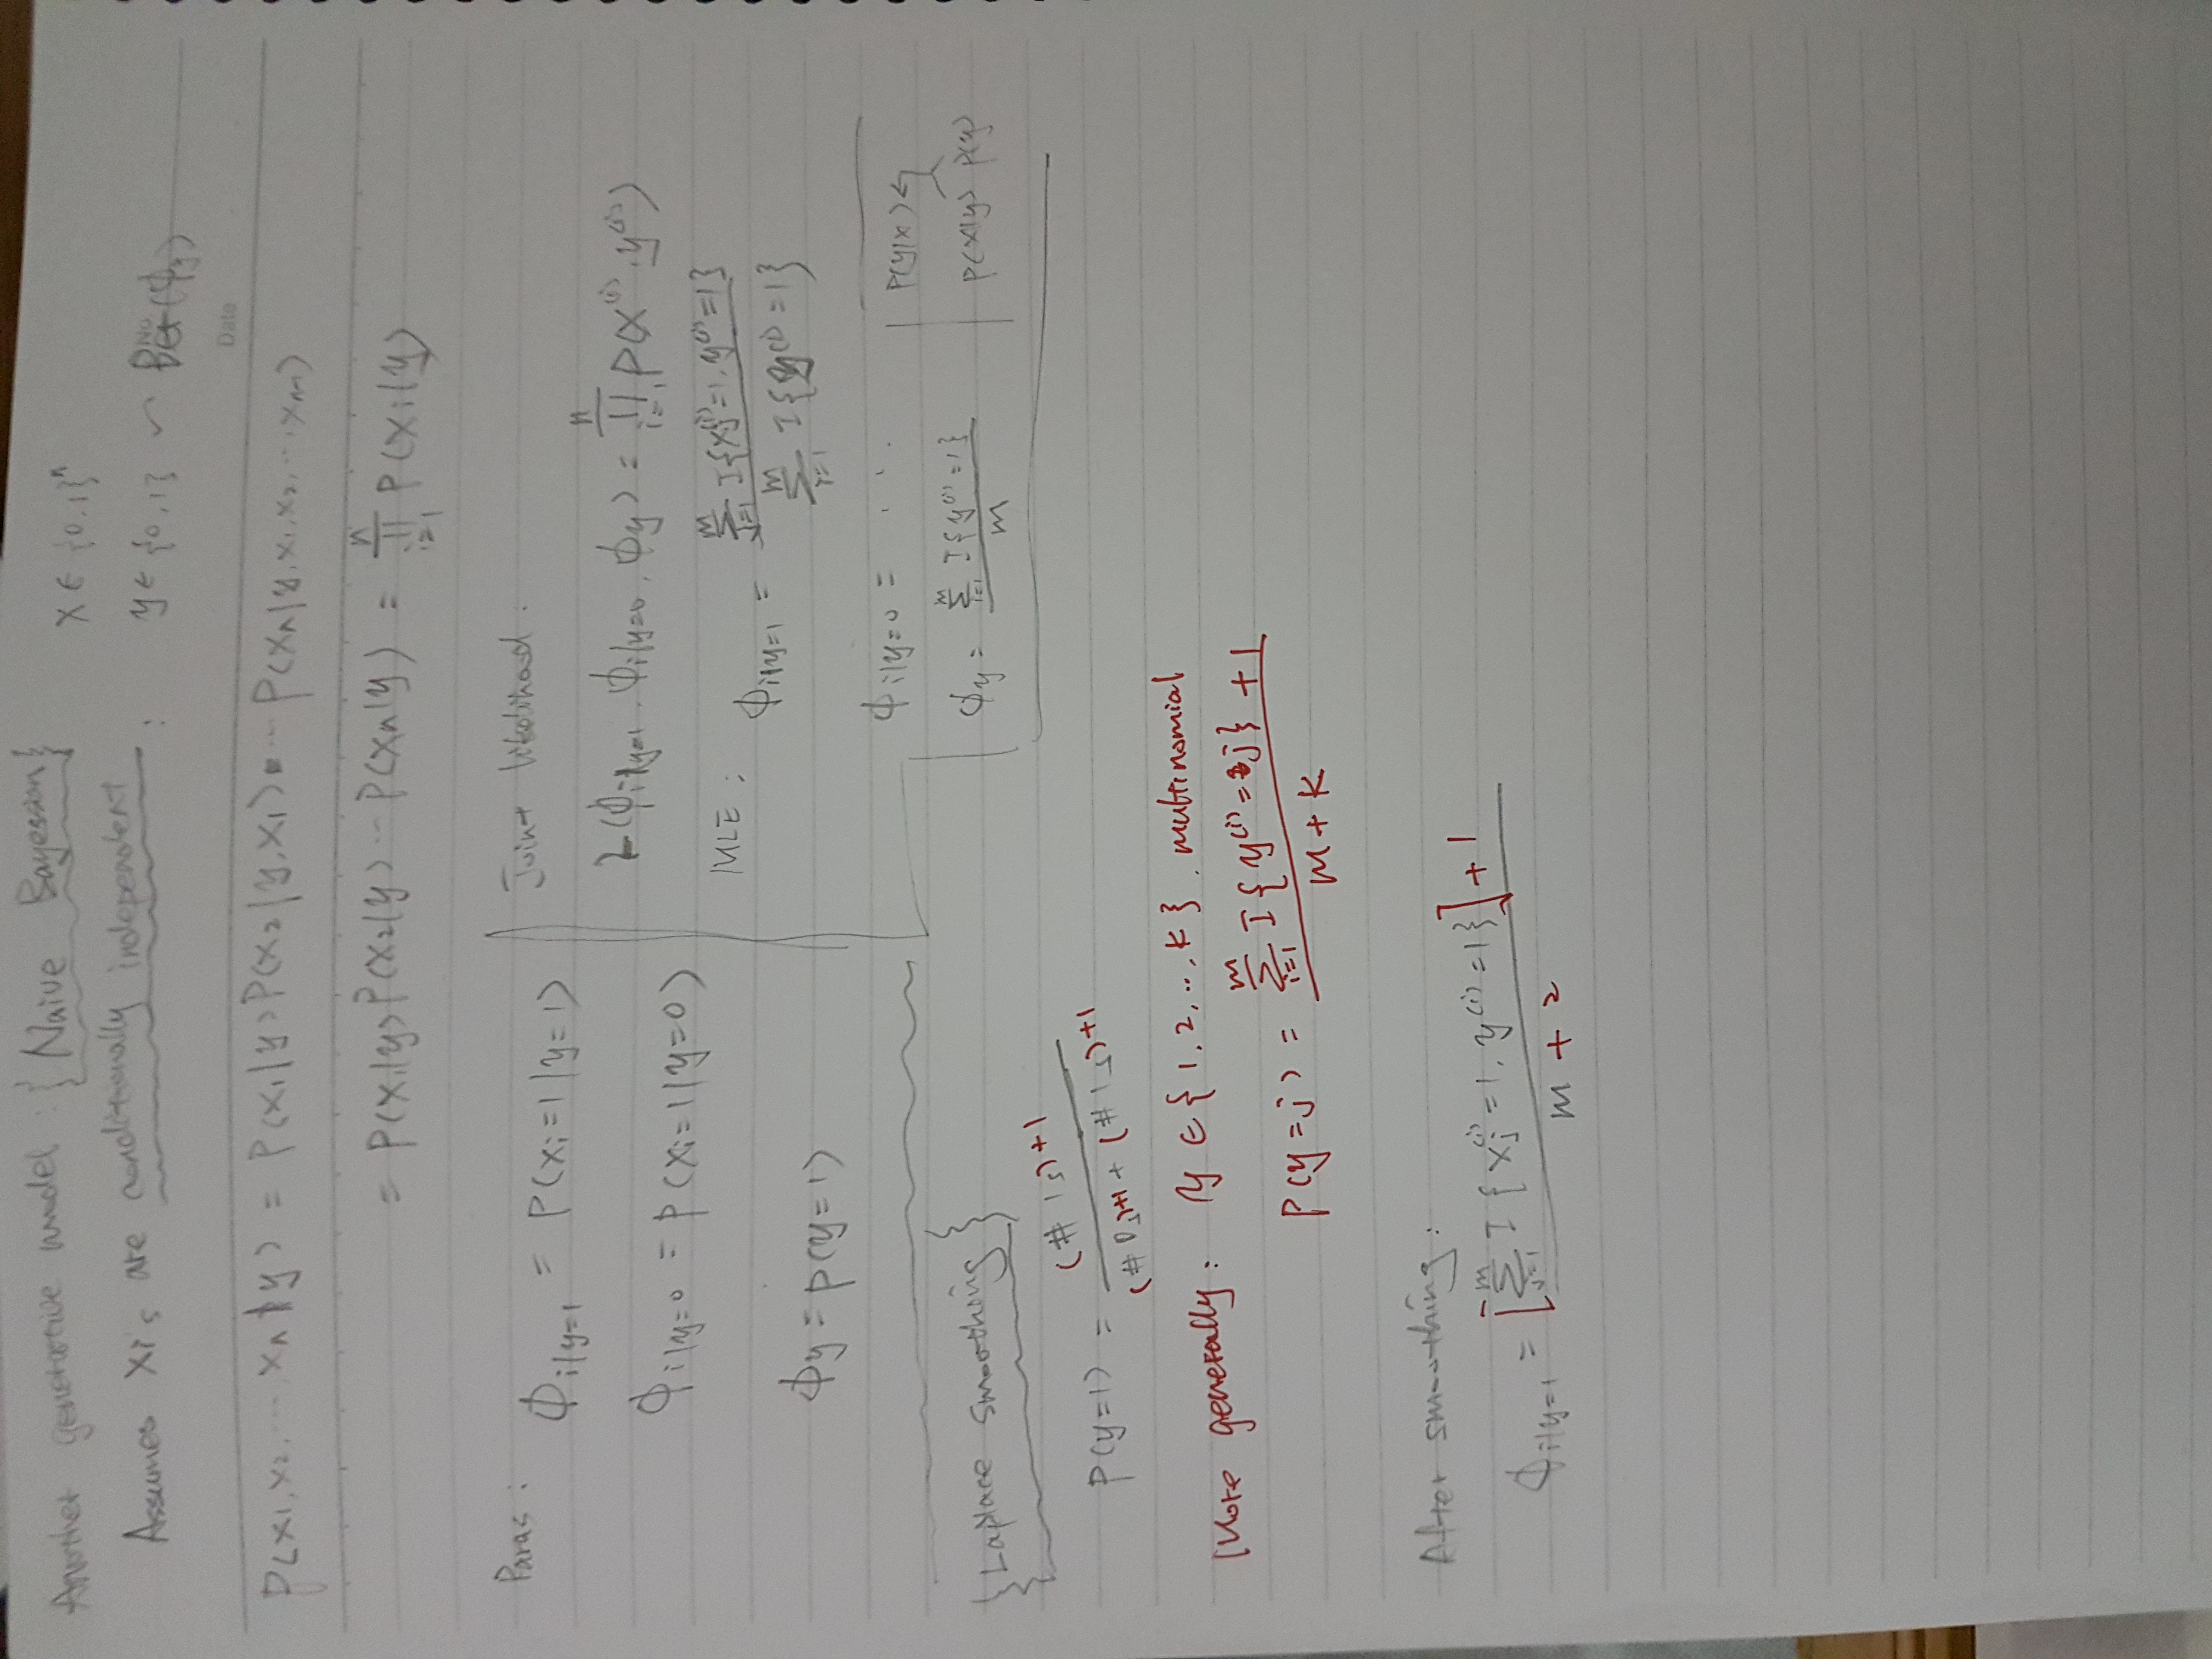 Another generative model : {Naive Bayesian}
X ∈ {0,1}ⁿ
Assumes Xi's are conditionally independent :
y ∈ {0,1} ~ Ber(ϕy)
No
Date
P(x1,x2,...xn|y) = P(x1|y)P(x2|y,x1)...P(xn|y,x1,x2,...,xn-1)
= P(x1|y)P(x2|y)...P(xn|y) = ∏_{i=1}^{n} P(xi|y)
Paras :
ϕ_{i|y=1} = P(xi=1|y=1)
ϕ_{i|y=0} = P(xi=1|y=0)
ϕy = P(y=1)
Joint likelihood :
L(ϕ_{i|y=1}, ϕ_{i|y=0}, ϕy) = ∏_{i=1}^{n} P(x^{(i)}, y^{(i)})
MLE : ϕ_{i|y=1} = \frac{∑_{j=1}^{m} I{x_j^{(i)}=1, y^{(i)}=1}}{∑_{i=1}^{m} I{y^{(i)}=1}}
ϕ_{i|y=0} = ...
ϕy = \frac{∑_{i=1}^{m} I{y^{(i)}=1}}{m}
P(y|x) ↰
P(x|y) P(y)
{Laplace smoothing}
P(y=1) = \frac{(# 1s)+1}{(# 0s)+1 + (# 1s)+1}
More generally: y ∈ {1,2,..,k}. multinomial
P(y=j) = \frac{∑_{i=1}^{m} I{y^{(i)}=j} + 1}{m+k}
After smoothing :
ϕ_{i|y=1} = \frac{[∑_{j=1}^{m} I{x_j^{(i)}=1, y^{(i)}=1}] + 1}{m + 2}